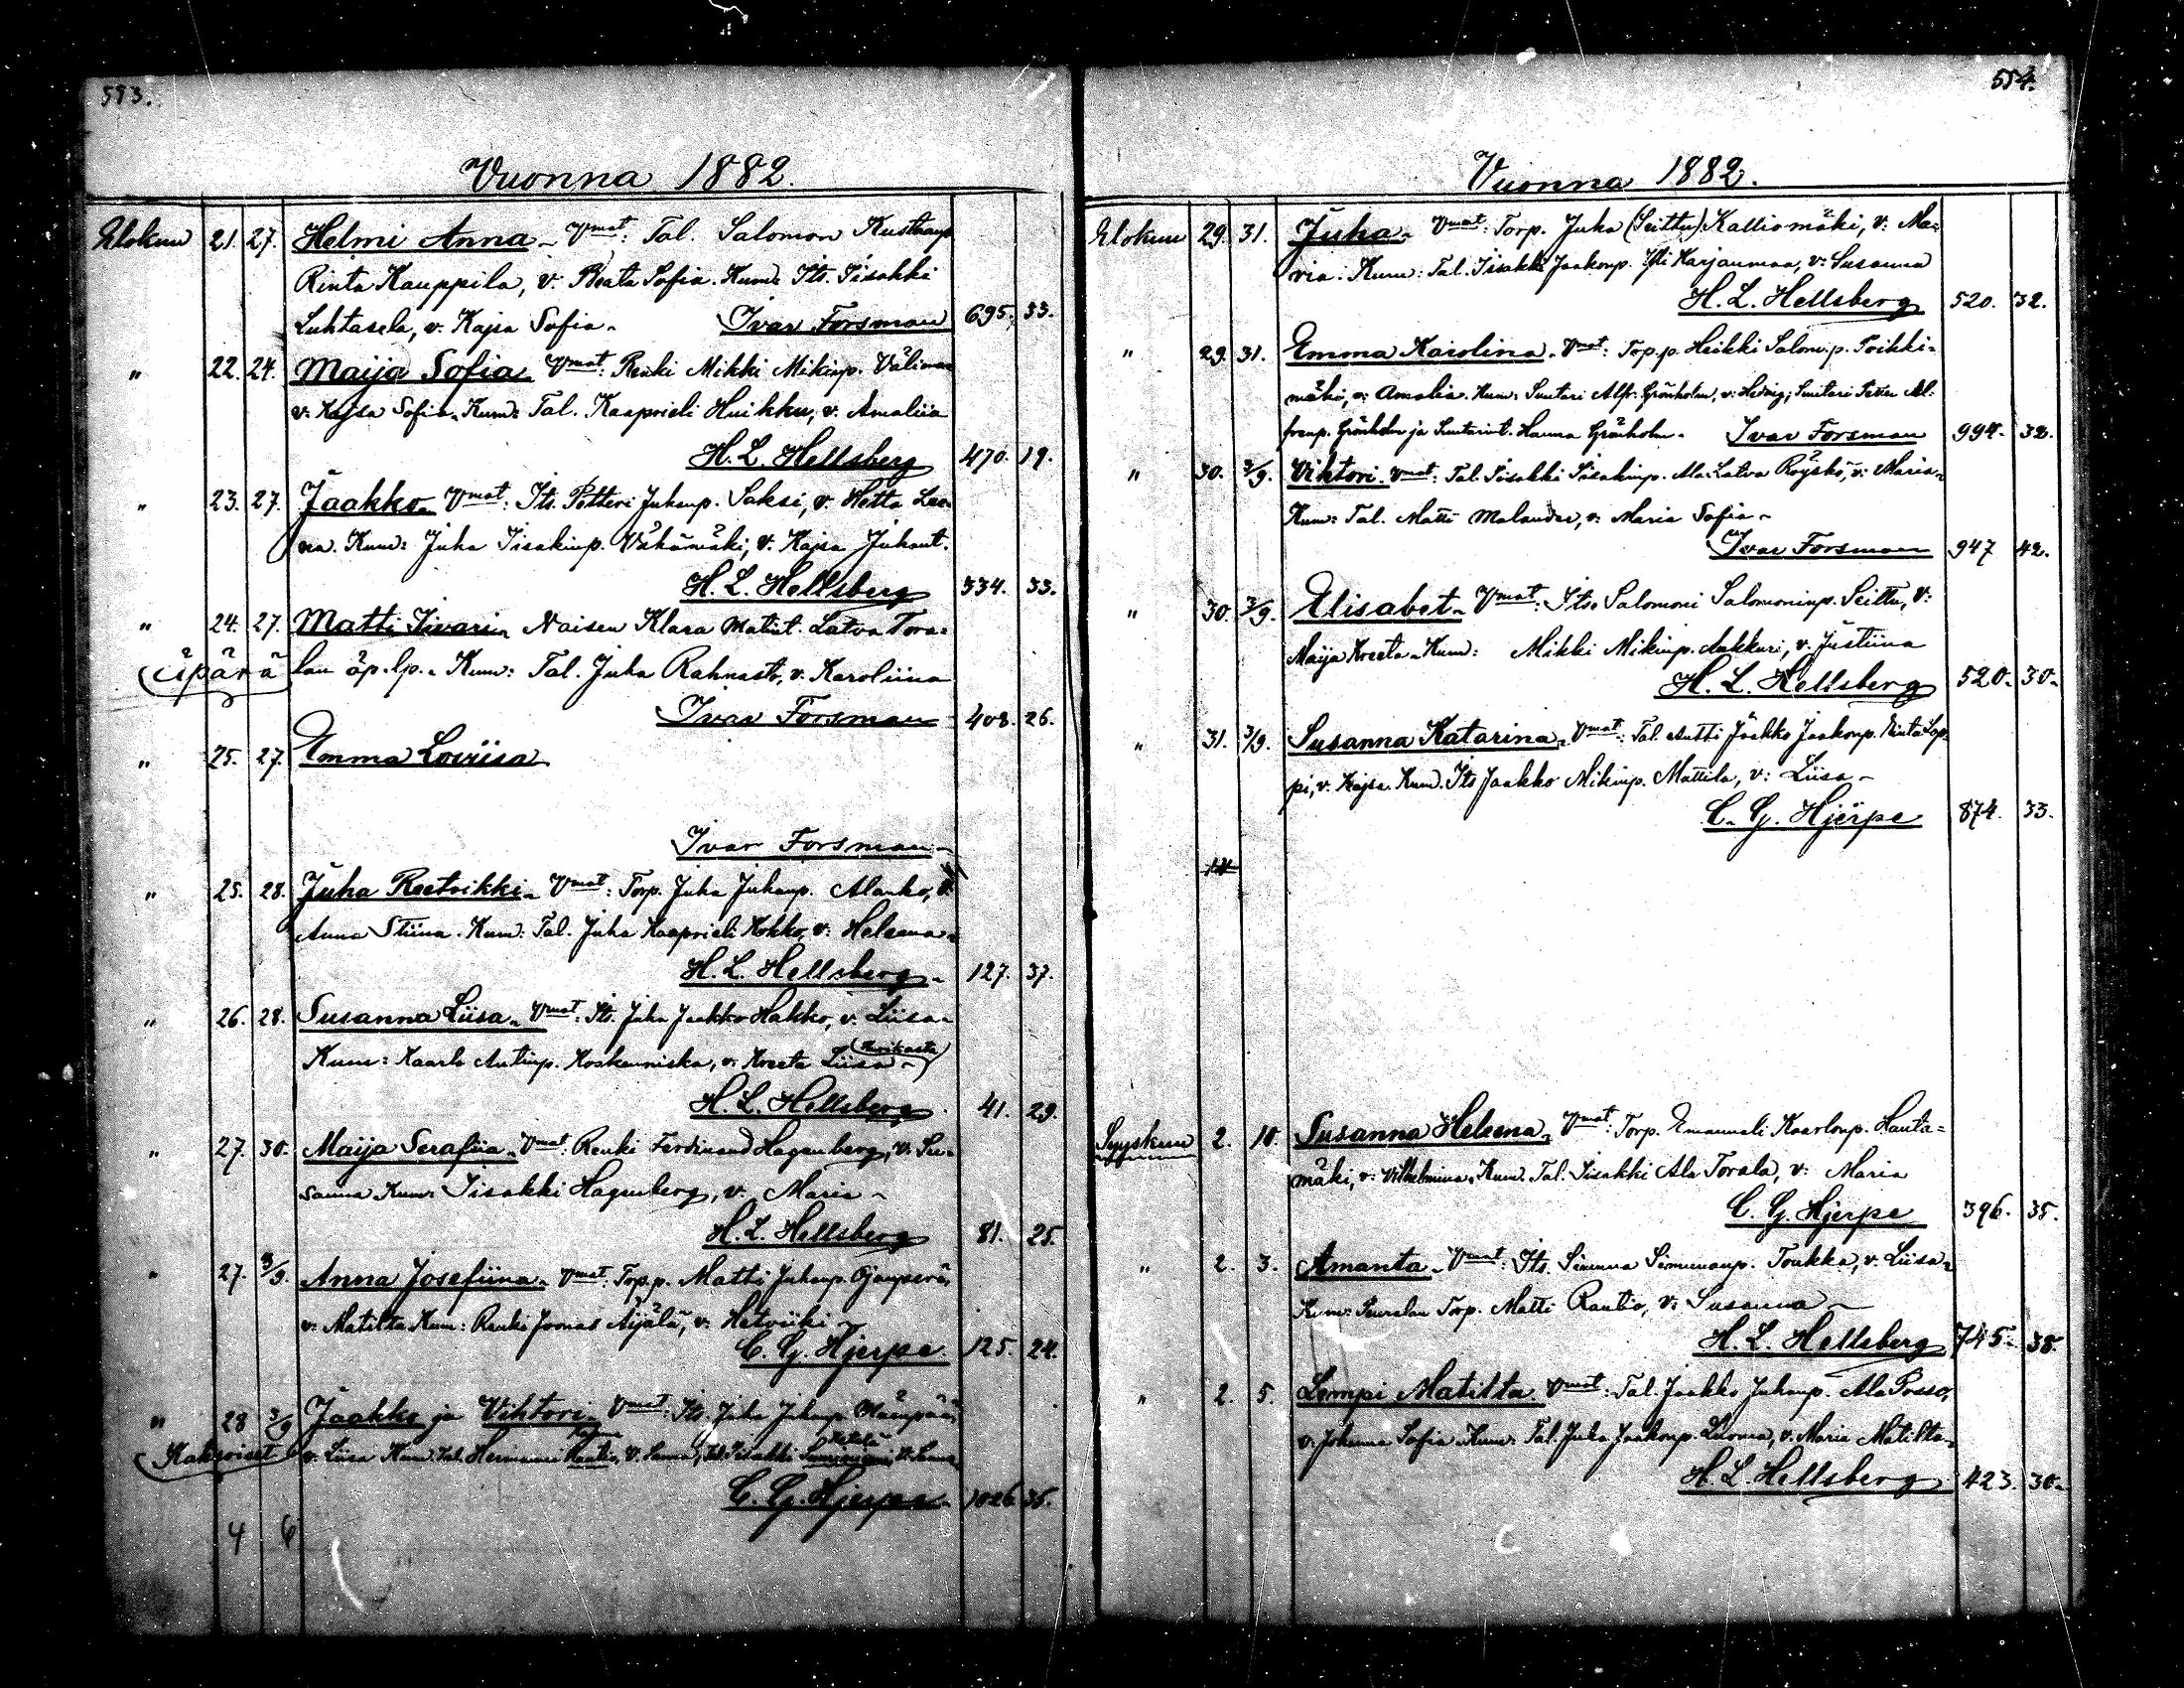 553.
Vuonna 1882.
Elokuu 21. 27. Helmi Anna - Vmat: Tal. Salomon Kustaanp
Rinta Kauppila, v. Beata Sofia. Kum: Its. Iisakki
Luhtasela, v. Kajsa Sofia - Ivar Forsman 695. 33.
" 22. 24. Maija Sofia - Vmat: Renki Mikki Mikinp. Välimaa
v. Kajsa Sofia. Kum: Tal. Kaaprieli Huikku, v. Amaliia
H. L. Hellsberg 470. 19.
" 23. 27. Jaakko - Vmat: Its. Petteri Juhanp. Saksi, v. Hetta Lee-
na. Kum: Juha Iisakinp. Vähämäki, v. Kajsa Juhant.
H. L. Hellsberg 334. 33.
" 24. 27. Matti Iivari - Naisen Klara Matint. Latva Tora-
(äpärä) lan äp. lp. - Kum: Tal. Juha Rahnasto, v. Karoliina
Ivar Forsman 403. 26.
" 25. 27. Emma Loviisa
Ivar Forsman -
" 25. 28. Juha Reetrikki - Vmat: Torp. Juha Juhanp. Alanko, v.
Anna Stiina. Kum: Tal. Juha Kaaprieli Kokko, v. Heleena -
H. L. Hellsberg - 127. 37.
" 26. 28. Susanna Liisa - Vmat: Its. Juha Jaakko Hakko, v. Liisa -
Kum: Kaarlo Antinp. Koskenniska, v. Kreeta Liisa -
H. L. Hellsberg 41. 29.
" 27. 30. Maija Serafiia - Vmat: Renki Ferdinand Hagenberg, v. Su-
sanna Kum: Iisakki Hagenberg, v. Maria -
H. L. Hellsberg 81. 25.
" 27. 3/9. Anna Josefiina - Vmat: Torp.p. Matti Juhanp. Ojanperä,
v. Matilta Kum: Renki Joonas Äijälä, v. Hetviiki -
C. G. Hjerpe 125. 24.
" 28 3/9 Jaakko ja Vihtori - Vmat: Its. Juha Juhanp. Mäenpää,
(Kaksoiset v. Liisa Kum: Tal. Hermanni v. Sanna, Tal. Iisakki
C. G. Hjerpe - 1026 35.
4 6
554.
Vuonna 1882.
Elokuu 29. 31. Juha - Vmat: Torp. Juha (Seittu) Kalliomäki, v: Ma-
ria. Kum: Tal. Iisakki Jaakonp. Yli Karjanmaa, v: Susanna
H. L. Hellsberg 520. 32.
" 29. 31. Emma Karolina - Vmat: Torp.p. Heikki Salom.p. Poikki-
mäki, v: Amalia. Kum: Suutari Alfr. Grönholm, v: Hedvig; Suutari Al-
frenp. Grönholm ja Suutarint. Hanna Grönholm - Ivar Forsman 994. 32.
" 30. 3/9. Vihtori - Vmat: Tal. Iisakki Iisakinp. Ala Latva Röyskö, v: Maria -
Kum: Tal. Matti Malander, v: Maria Sofia -
Ivar Forsman 947 42.
" 30. 3/9. Elisabet - Vmat: Its. Salomoni Salomoninp. Seittu, v:
Maija Kreeta - Kum: Mikki Mikinp. Aakkuri, v. Justiina
H. L. Hellsberg 520. 30.
" 31. 3/9. Susanna Katarina - Vmat: Tal. Antti Jaakko Jaakonp. Rinta Lop-
pi, v. Kajsa. Kum. Its Jaakko Mikinp. Mattila, v: Liisa -
C. G. Hjerpe 874. 33.
Syyskuu 2. 10. Susanna Heleena - Vmat: Torp. Emanueli Kaarlonp. Hauta-
mäki, v: Vilhelmina. Kum. Tal. Iisakki Ala Torala, v: Maria
C. G. Hjerpe 396. 35.
" 2. 3. Amanta - Vmat: Its. Simuna Simunanp. Toukka, v: Liisa -
Kum: Peuralan Torp. Matti Rautio, v: Susanna -
H. L. Hellsberg 745. 38.
" 2. 5. Lempi Matilta. Vmat: Tal. Jaakko Juhanp. Ala Posso,
v. Johanna Sofia. Kum: Tal. Juha Jaakonp. Luoma, v: Maria Matilta -
H. L. Hellsberg 423. 30.